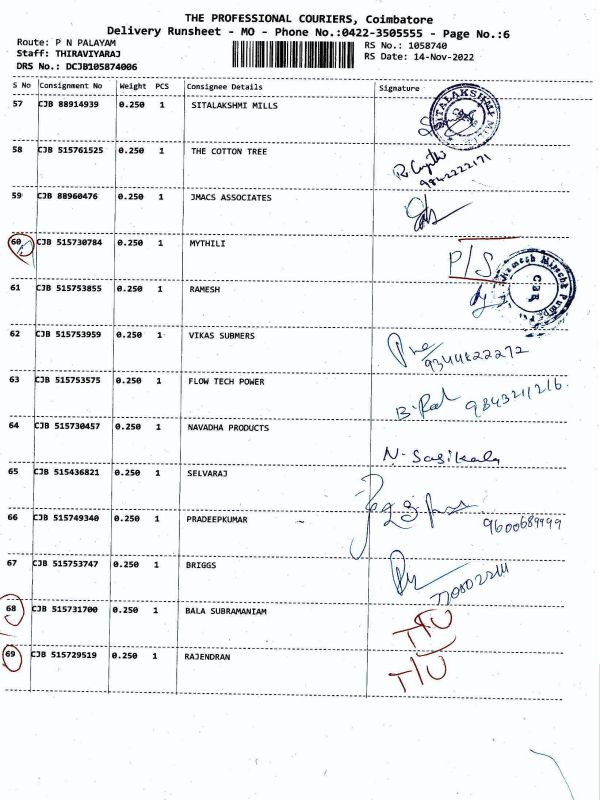 THE PROFESSIONAL COURIERS, Coimbatore
Delivery Runsheet - MO - Phone No.:0422-3505555 - Page No.:6
Route: P N PALAYAM
Staff: THIRAVIYARAJ
DRS No.: DCJB105874006
RS No.: 1058740
RS Date: 14-Nov-2022
S No Consignment No Weight PCS Consignee Details Signature
57 CJB 88914939 0.250 1 SITALAKSHMI MILLS
58 CJB 515761525 0.250 1 THE COTTON TREE
9842222171
59 CJB 88960476 0.250 1 JMACS ASSOCIATES
60 CJB 515730784 0.250 1 MYTHILI
P/S
61 CJB 515753855 0.250 1 RAMESH
CBR
62 CJB 515753959 0.250 1 VIKAS SUBMERS
9344822272
63 CJB 515753575 0.250 1 FLOW TECH POWER
9843211216.
64 CJB 515730457 0.250 1 NAVADHA PRODUCTS
N. Sasikala
65 CJB 515436821 0.250 1 SELVARAJ
66 CJB 515749340 0.250 1 PRADEEPKUMAR
9600689999
67 CJB 515753747 0.250 1 BRIGGS
68 CJB 515731700 0.250 1 BALA SUBRAMANIAM
T/U
69 CJB 515729519 0.250 1 RAJENDRAN
T/U